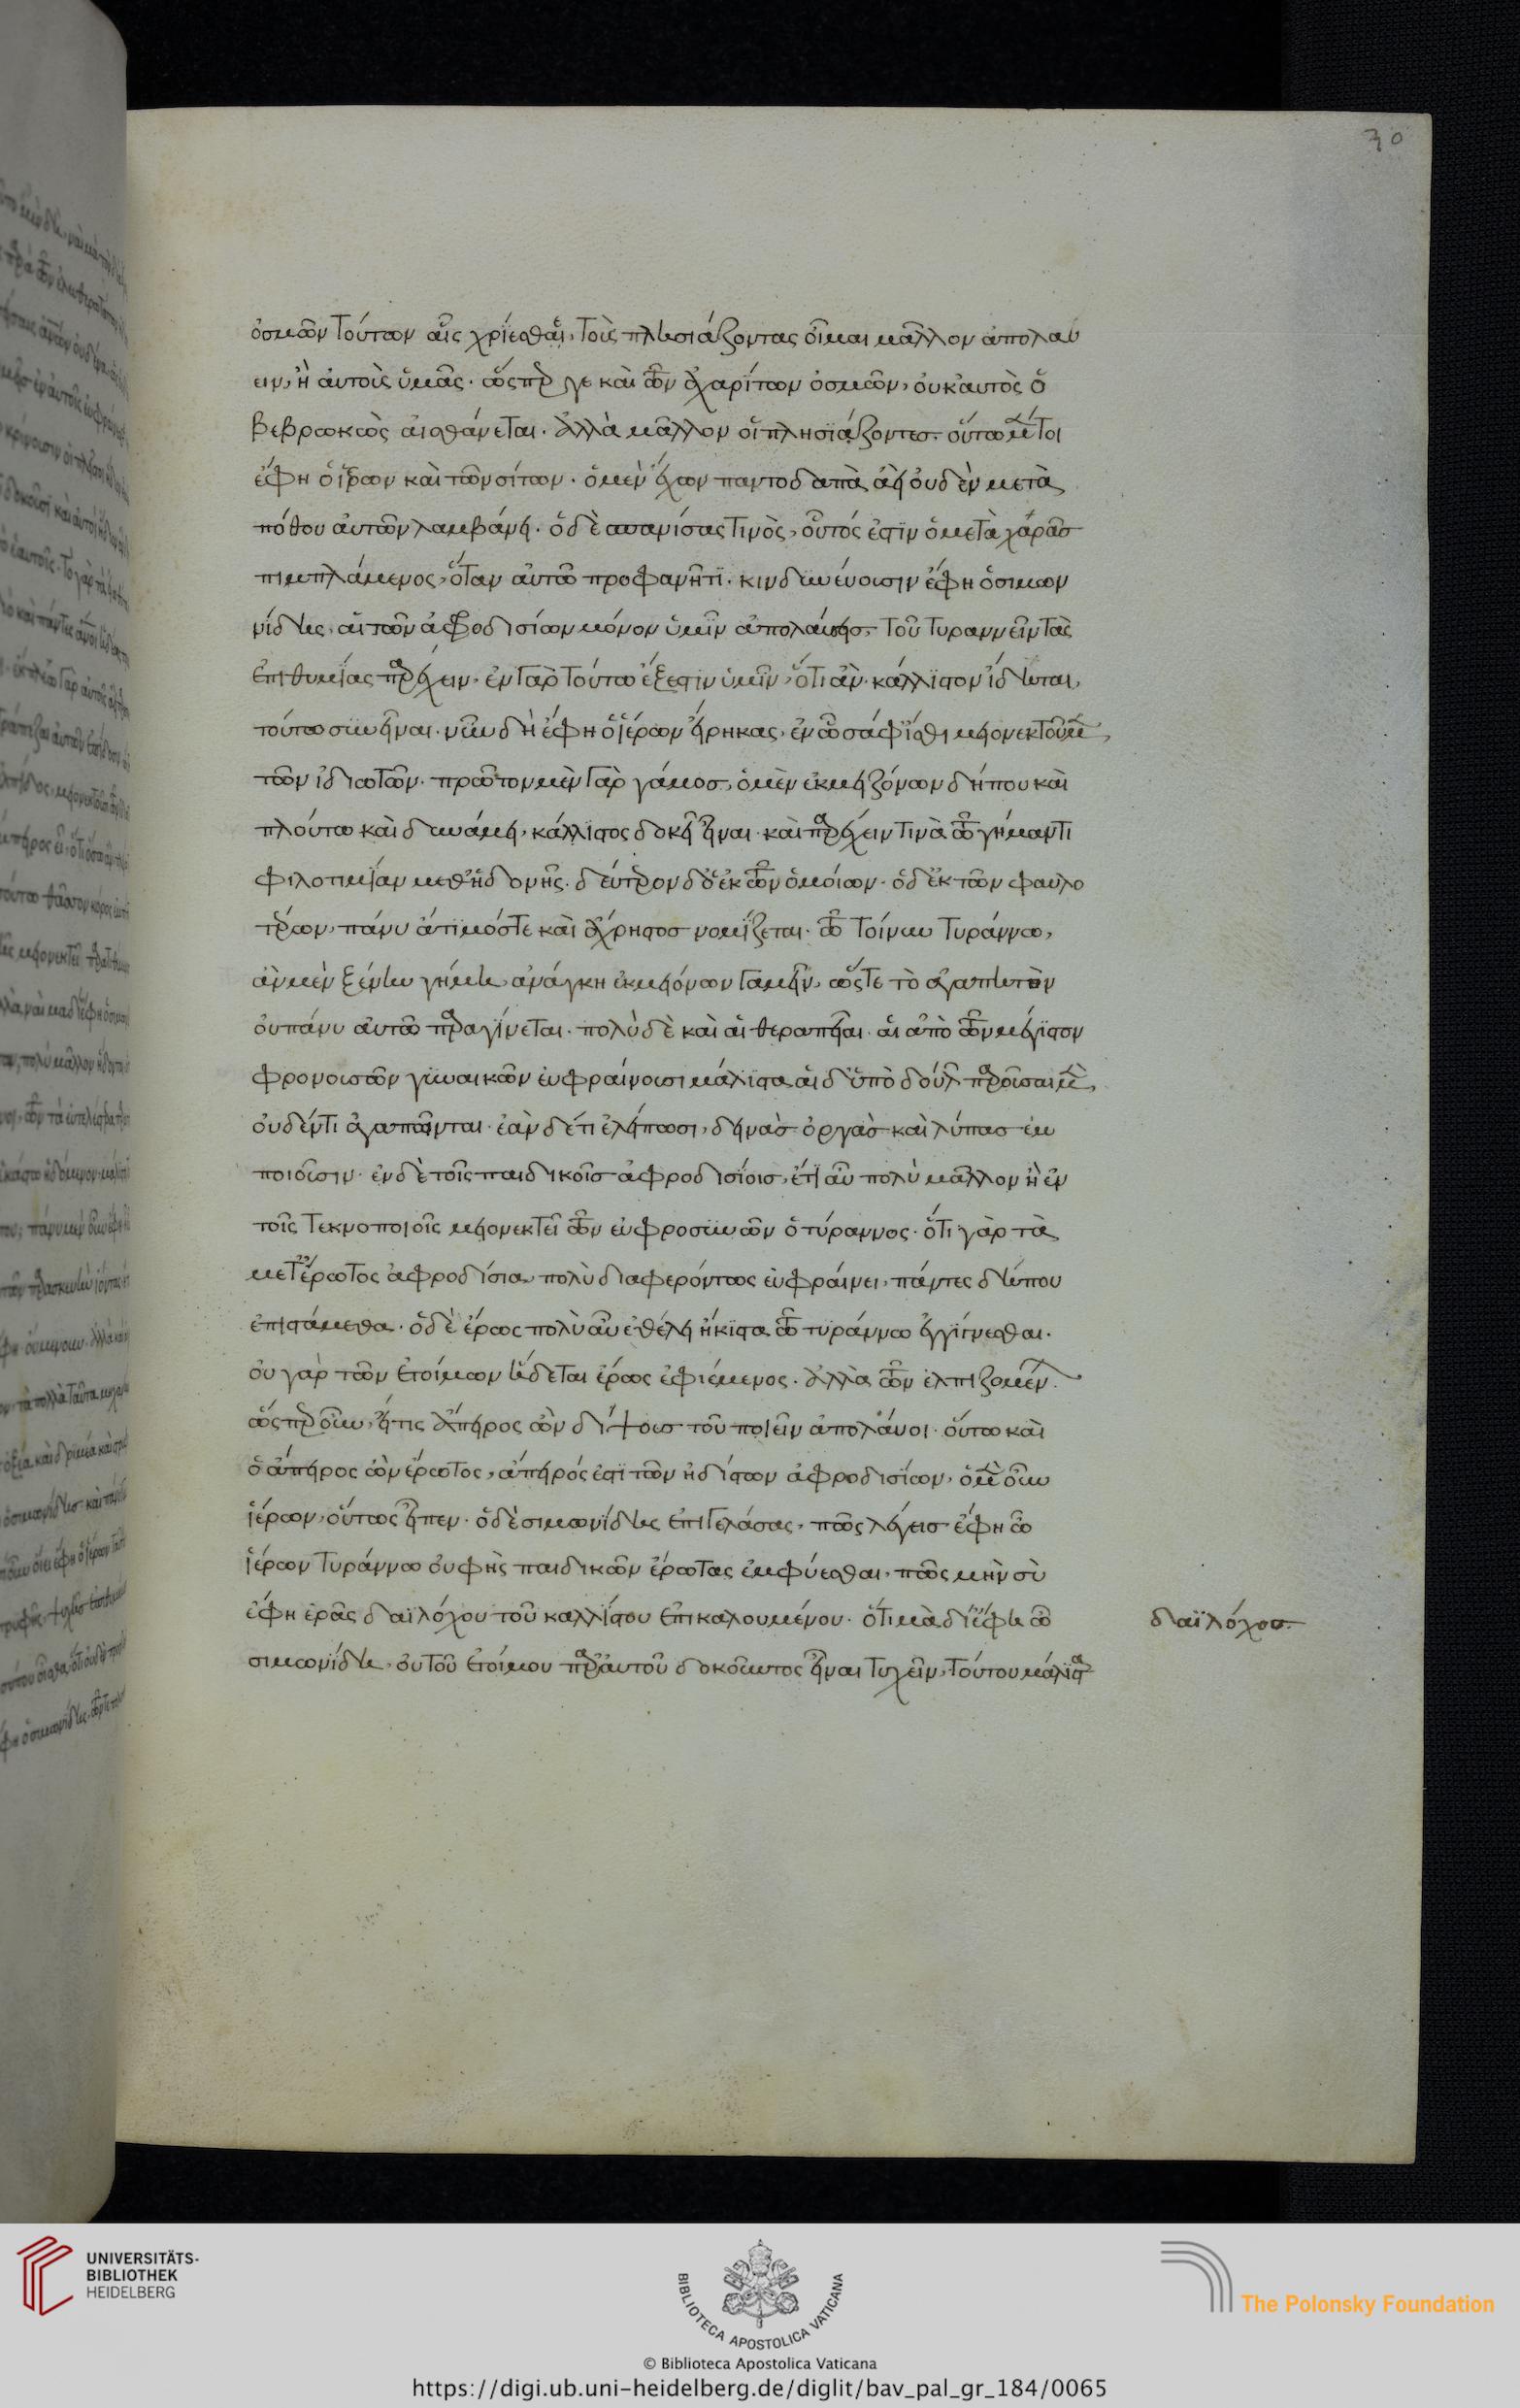 30
ὀσμῶν τούτων αἷς χρίεσθαί, τοὺς πλησιάζοντας οἶμαι μᾶλλον ἀπολαύ
ειν, ἢ αὐτοὺς ὑμᾶς. ὥσπερ γε καὶ τῶν ἀχαρίτων ὀσμῶν, οὐκ αὐτὸς ὁ
βεβρωκὼς αἰσθάνεται. ἀλλὰ μᾶλλον οἱ πλησιάζοντες. οὕτω μέντοι
ἔφη ὁ ἱέρων καὶ τῶν σίτων. ὁ μὲν ἔχων παντοδαπὰ ἀεὶ οὐδὲν μετὰ
πόθου αὐτῶν λαμβάνει. ὁ δὲ σπανίσας τινὸς, οὗτός ἐστιν ὁ μετὰ χαρᾶς
πιμπλάμενος, ὅταν αὐτῶ προφανῆ τι. κινδυνεύουσιν ἔφη ὁ σιμω
νίδης, αἱ τῶν ἀφροδισίων μόνον ὑμῖν ἀπολαύσεις, τοῦ τυραννεῖν τὰς
ἐπιθυμίας παρέχειν. ἐν γὰρ τούτω ἔξεστιν ὑμῖν, ὅτι ἂν κάλλιστον ἴδηται,
τούτω συνεῖναι. νῦν δὴ ἔφη ὁ ἱέρων εἴρηκας, ἐν ὧ σάφ' ἴσθι μειονεκτοῦμεν
τῶν ἰδιωτῶν. πρῶτον μὲν γὰρ γάμος, ὁ μὲν ἐκ μειζόνων δήπου καὶ
πλούτω καὶ δυνάμει, κάλλιστος δοκεῖ εἶναι. καὶ παρέχειν τινὰ τῶ γήμαντι
φιλοτιμίαν μεθ' ἡδονῆς. δεύτερον δ' ὁ ἐκ τῶν ὁμοίων. ὁ δ' ἐκ τῶν φαυλο
τέρων, πάνυ ἄτιμός τε καὶ ἄχρηστος νομίζεται. τῶ τοίνυν τυράννω,
ἂν μὲν ξένην γήμη, ἀνάγκη ἐκ μειόνων γαμεῖν, ὥστε τὸ ἀγαπητὸν
οὐ πάνυ αὐτῶ παραγίνεται. πολὺ δὲ καὶ αἱ θεραπεῖαι αἱ ἀπὸ τῶν μέγιστον
φρονουσῶν γυναικῶν εὐφραίνουσι μάλιστα αἱ δ' ὑπὸ δούλων παροῦσαι μὲν,
οὐδέν τι ἀγαπῶνται. ἐὰν δέ τι ἐλλείπωσι, δεινὰς ὀργὰς καὶ λύπας ἐμ
ποιοῦσιν. ἐν δὲ τοῖς παιδικοῖς ἀφροδισίοις, ἔτι αὖ πολὺ μᾶλλον ἢ ἐν
τοῖς τεκνοποιοῖς μειονεκτεῖ τῶν εὐφροσυνῶν ὁ τύραννος. ὅτι γὰρ τὰ
μετ' ἔρωτος ἀφροδίσια, πολὺ διαφερόντως εὐφραίνει, πάντες δήπου
ἐπιστάμεθα. ὁ δὲ ἔρως πολὺ αὖ ἐθέλει ἥκιστα τῶ τυράννω ἐγγίγνεσθαι.
οὐ γὰρ τῶν ἑτοίμων ἥδεται ἔρως ἐφιέμενος. ἀλλὰ τῶν ἐλπιζομένων.
ὥσπερ οὖν, εἴ τις ἄπειρος ὢν δίψους τοῦ πιεῖν ἀπολαύοι. οὕτω καὶ
ὁ ἄπειρος ὢν ἔρωτος, ἄπειρός ἐστι τῶν ἡδίστων ἀφροδισίων, ὁ μὲν οὖν
ἱέρων, οὕτως εἶπεν. ὁ δὲ σιμωνίδης ἐπιγελάσας, πῶς λέγεις ἔφη ὦ
ἱέρων τυράννω οὐ φὴς παιδικῶν ἔρωτας ἐμφύεσθαι, πῶς μὴν σὺ
ἔφη ἐρᾶς δαϊλόχου τοῦ καλλίστου ἐπικαλουμένου. ὅτι μὰ δί' ἔφη ὦ
σιμωνίδη, οὐ τοῦ ἑτοίμου παρ' αὐτοῦ δοκοῦντος εἶναι τυχεῖν, τούτου μάλιστα
δαϊλόχος.
UNIVERSITÄTS-
BIBLIOTHEK
HEIDELBERG
BIBLIOTECA APOSTOLICA VATICANA
The Polonsky Foundation
© Biblioteca Apostolica Vaticana
https://digi.ub.uni-heidelberg.de/diglit/bav_pal_gr_184/0065